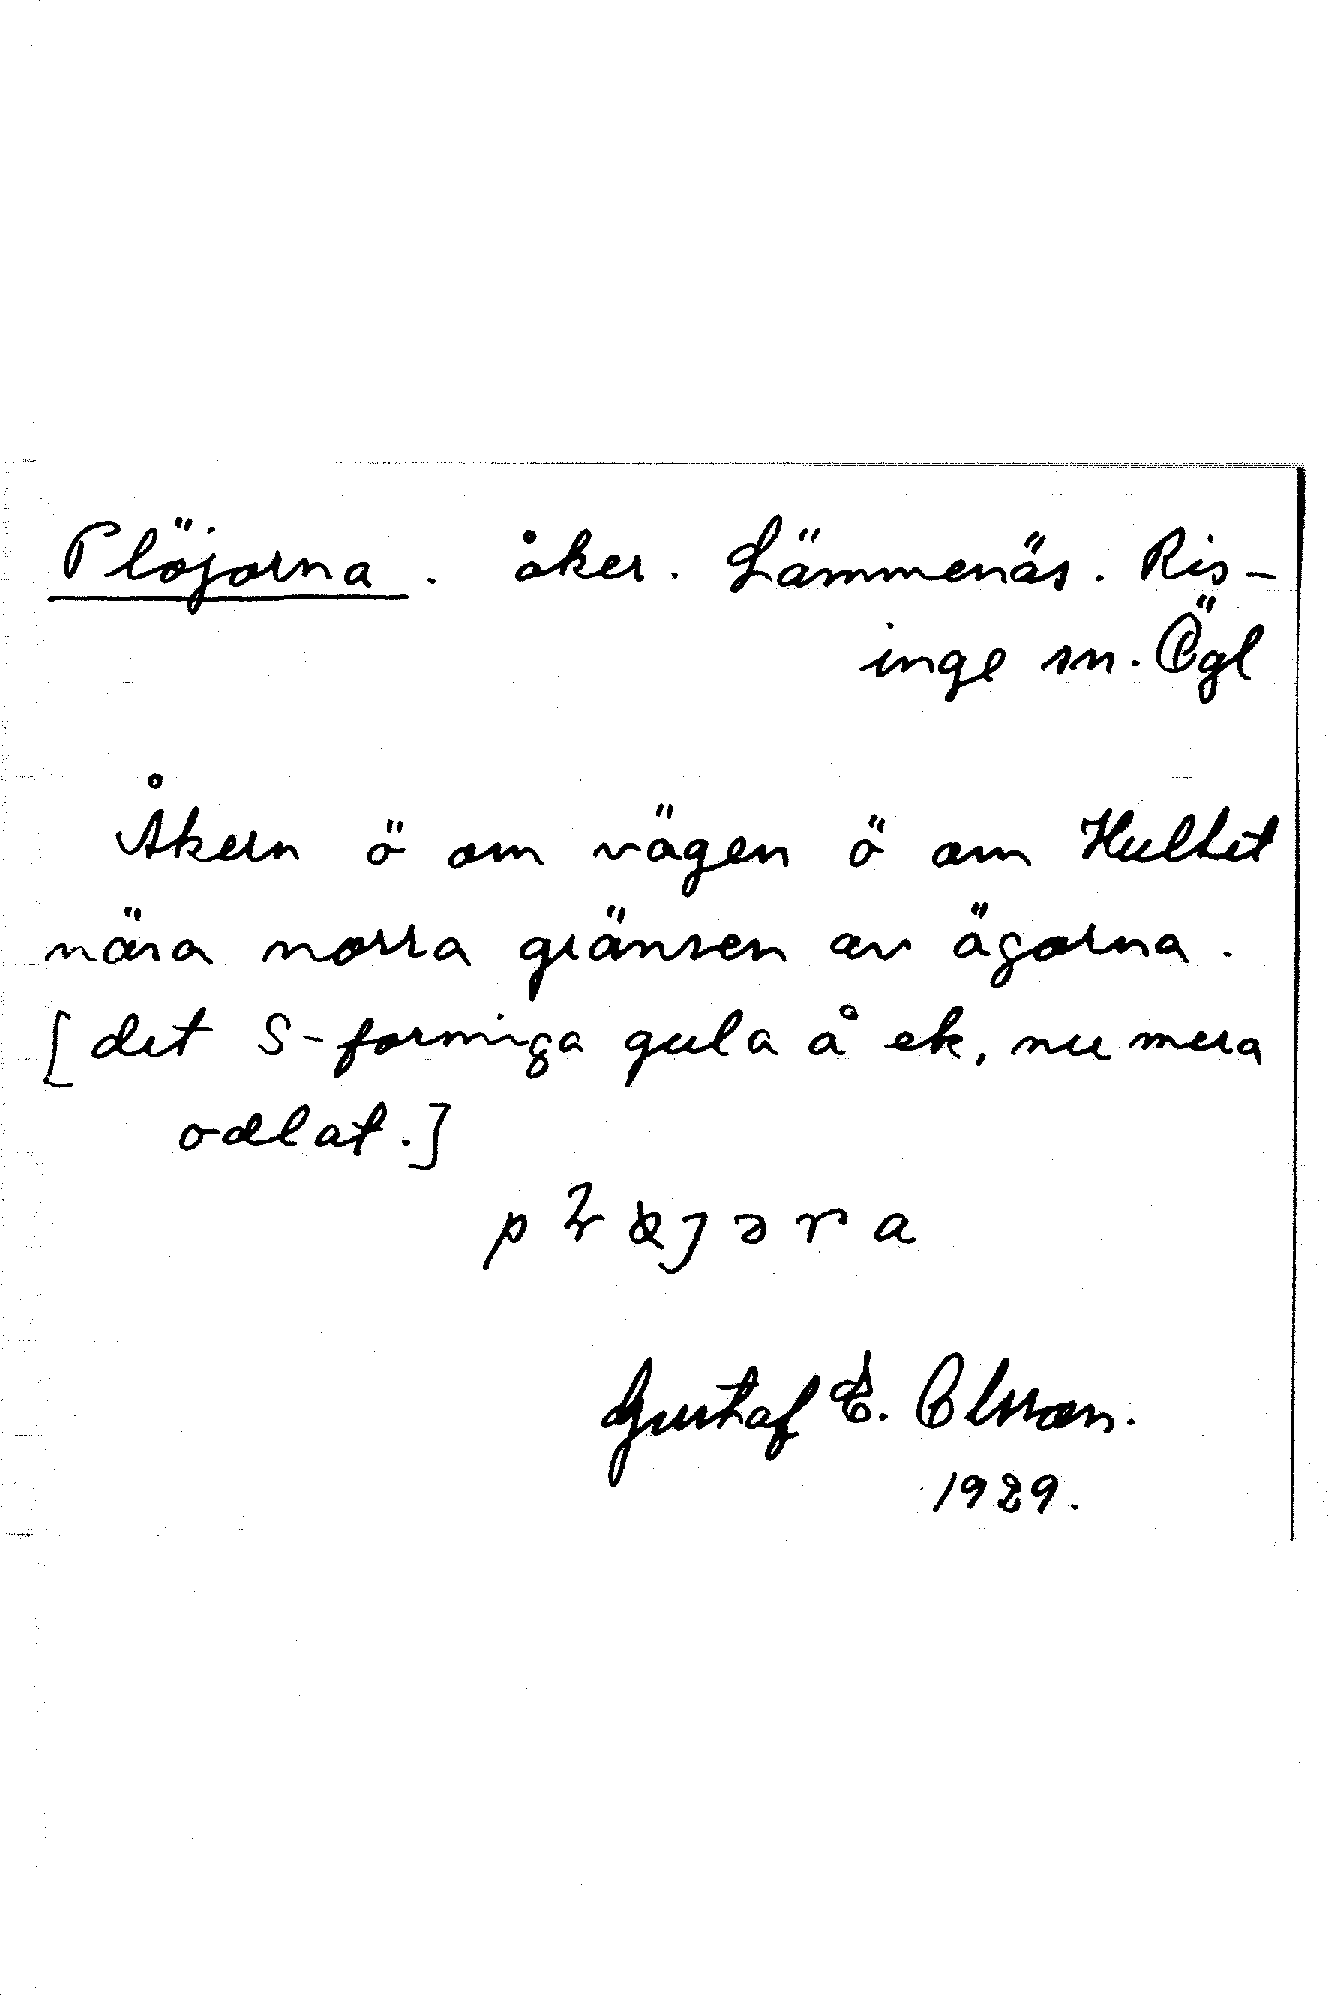 Plöjorna. åker. Lämmenäs. Ris-
inge sn. Ögl
Åkern ö om vägen ö om Hultet
nära norra gränsen av ägorna.
[det S-formiga gula å ek, numera
odlat.]
Gustaf E. Olsson.
1929.